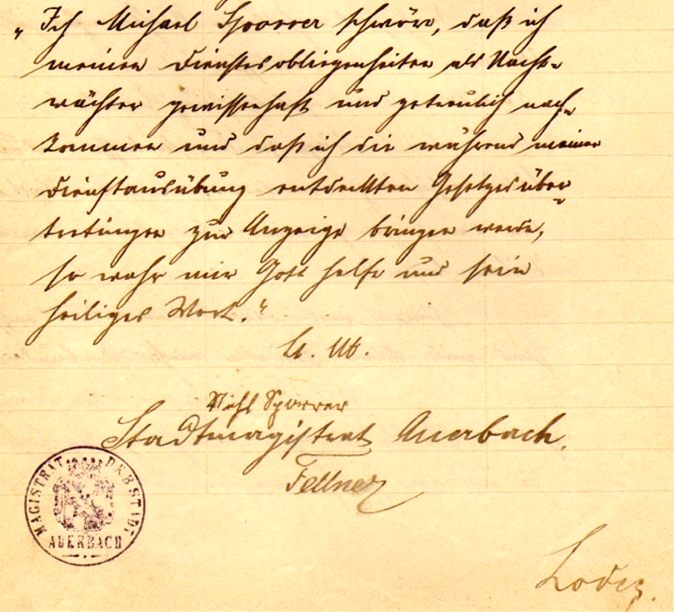 „Ich Michael Sporrer schwöre, daß ich
meinen Dienstesobliegenheiten als Nacht-
wächter gewissenhaft und getreulich nach-
kommen und daß ich die während meiner
Dienstausübung entdeckten Gesetzesüber-
tretungen zur Anzeige bringen werde,
so wahr mir Gott helfe und sein
heiliges Wort.“
Michl Sporrer
Stadtmagistrat Auerbach.
Fellner
MAGISTRAT DER STADT
AUERBACH